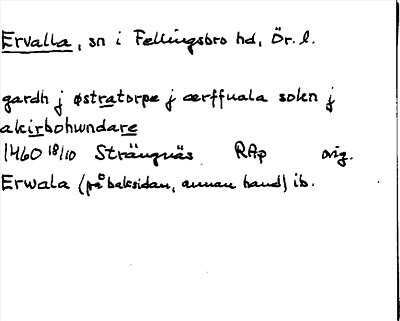 Ervalla, sn i Fellingsbro hd, Ör. l.
gardh j østratorpe j ærffuala sokn j
akirbohwndare
1460 18/10 Strängnäs RAp orig.
Erwala (på baksidan, annan hand) ib.